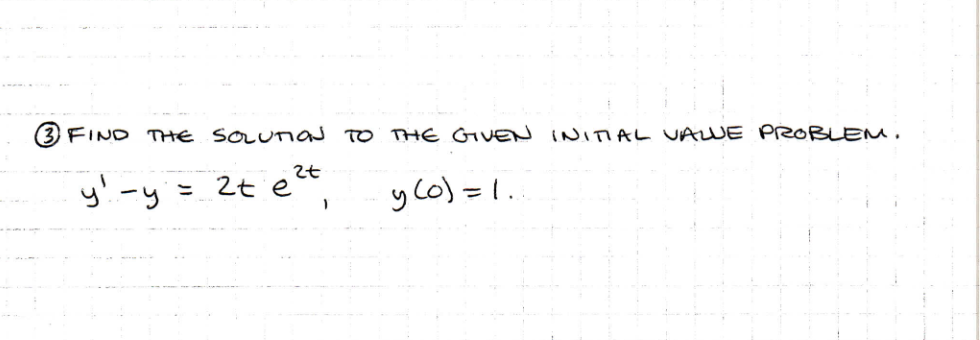 ③ FIND THE SOLUTION TO THE GIVEN INITIAL VALUE PROBLEM.
y' - y = 2t e^{2t}, y(0) = 1.